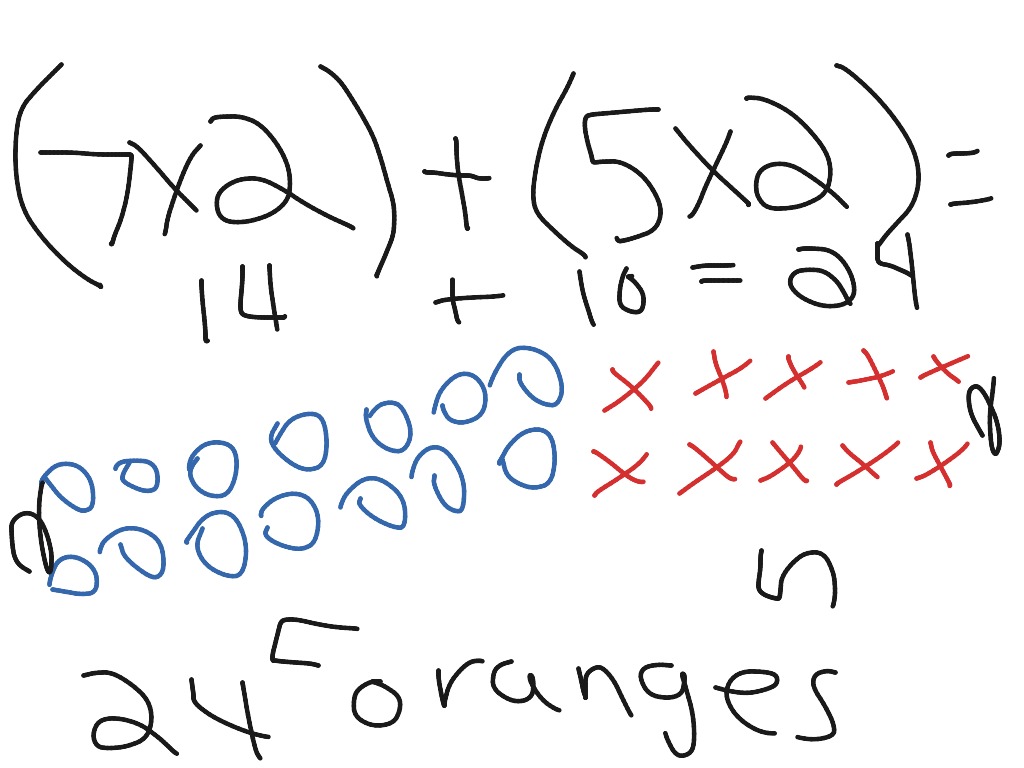 (7x2) + (5x2) =
14 + 10 = 24
5
24 oranges